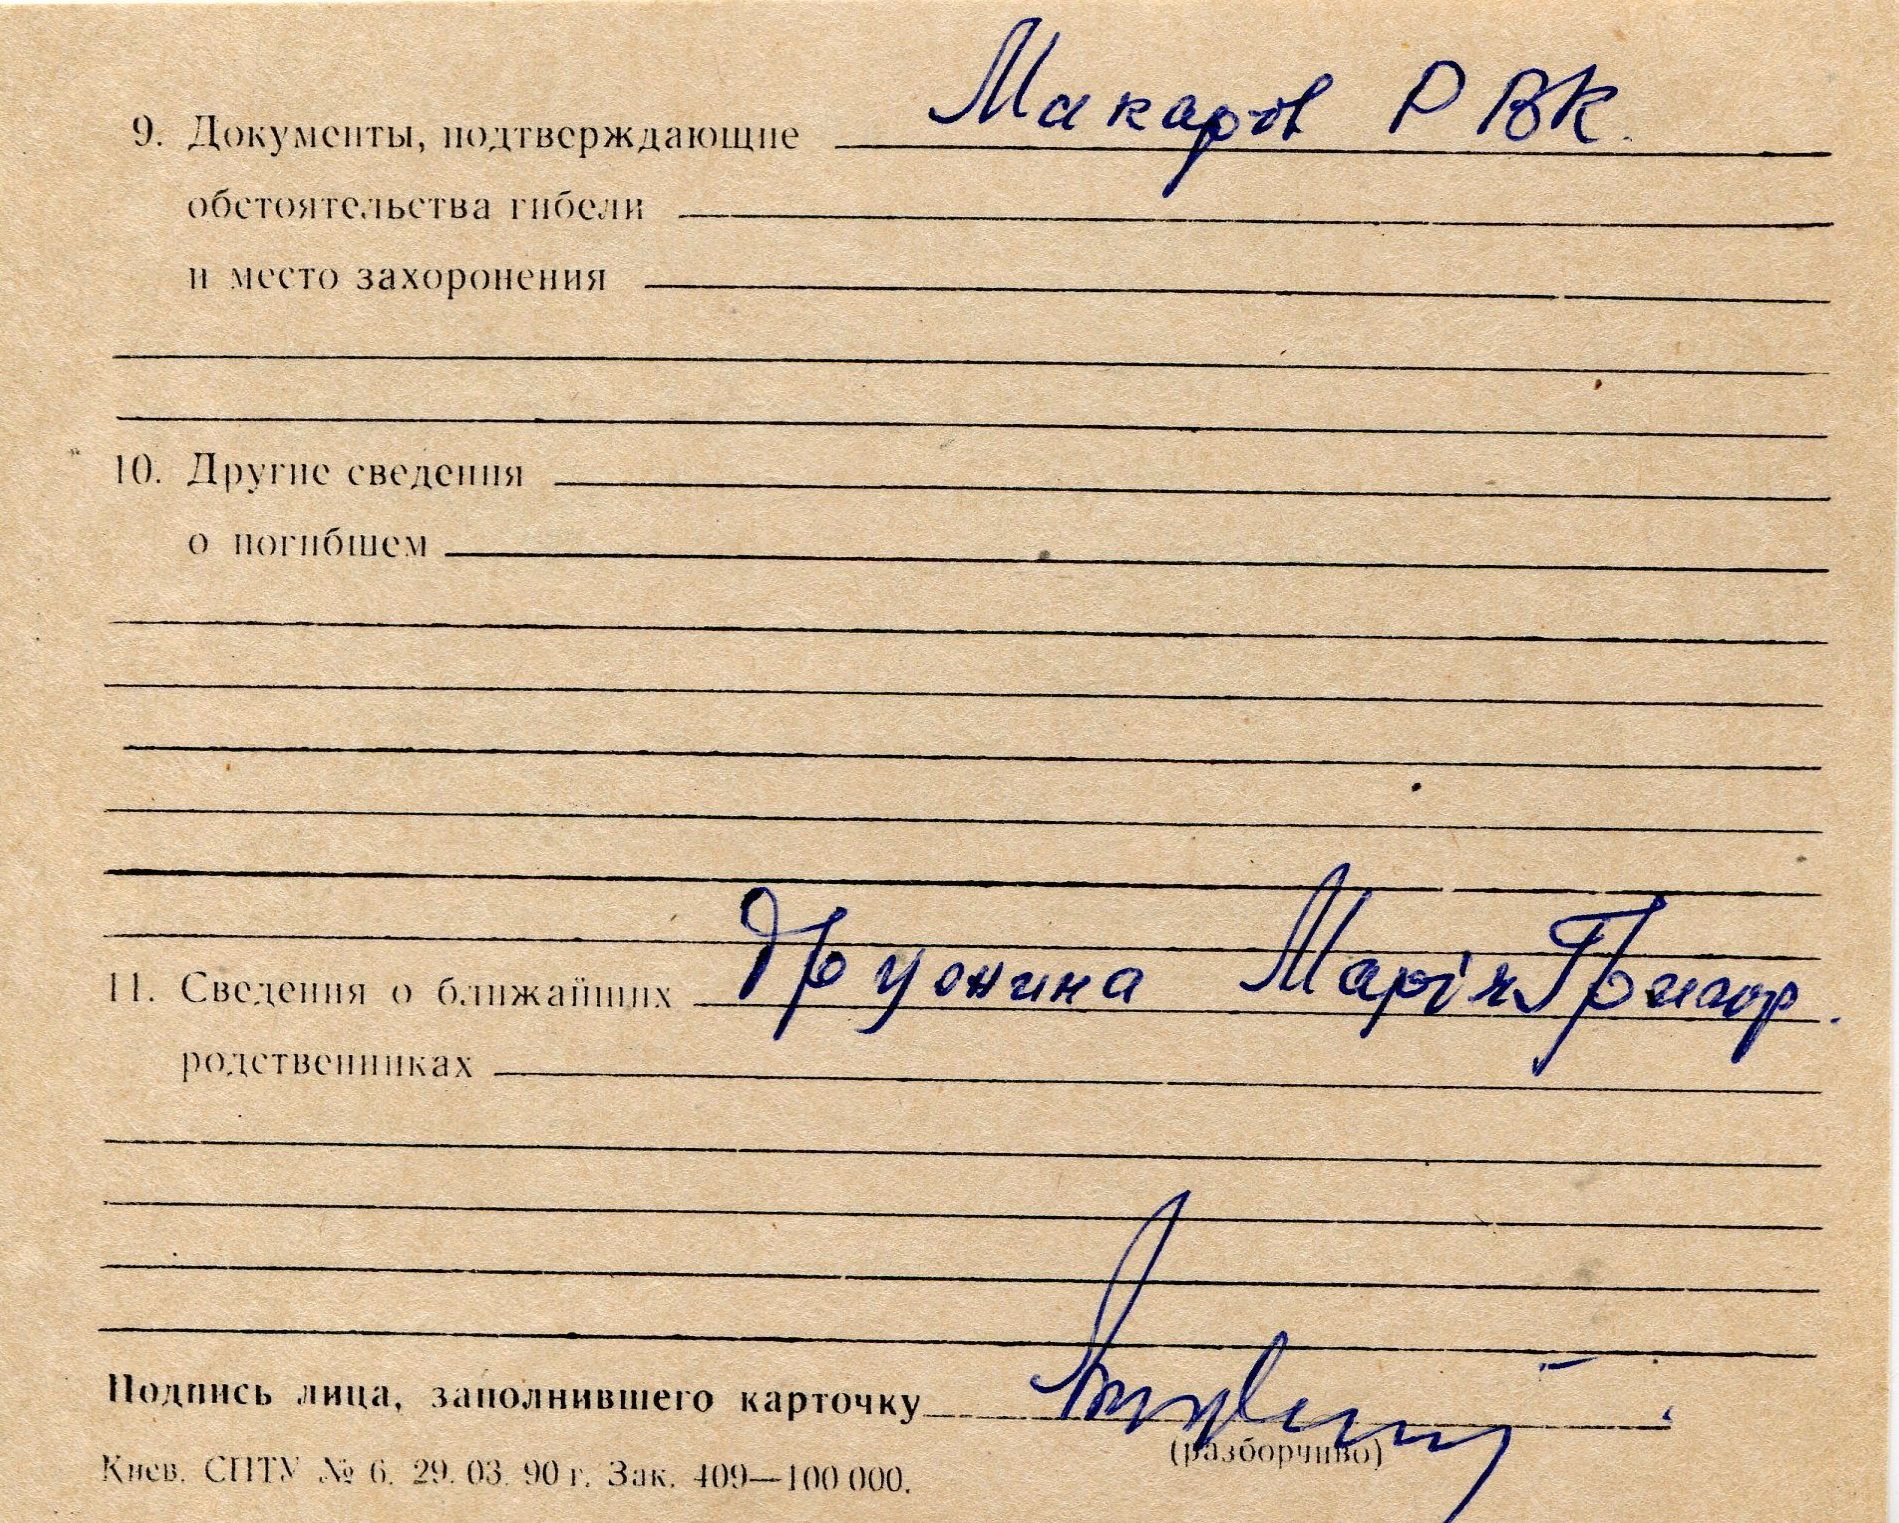 9. Документы, подтверждающие Макаров РВК.
обстоятельства гибели
и место захоронения
10. Другие сведения
о погибшем
11. Сведения о ближайших Марія Григор.
родственниках
Подпись лица, заполнившего карточку
(разборчиво)
Киев. СПТУ № 6. 29. 03. 90 г. Зак. 409—100 000.